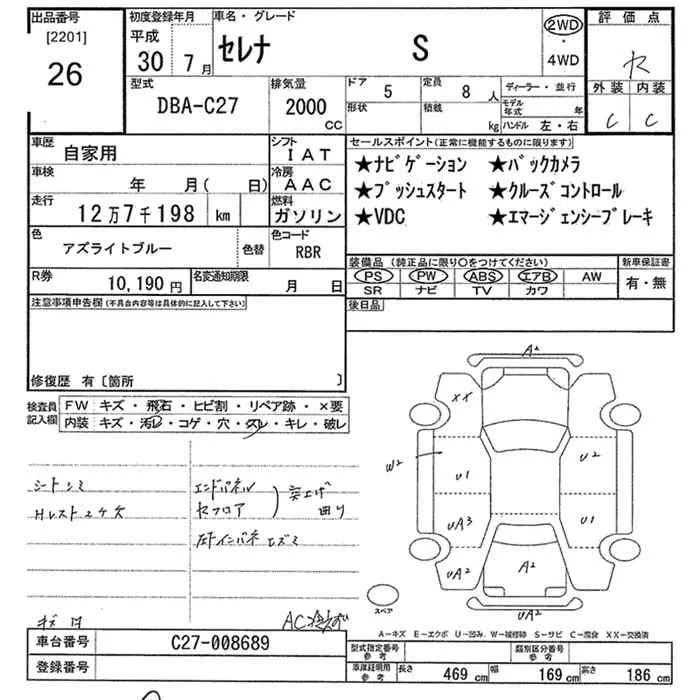 出品番号
[2201]
26
初度登録年月
平成
30 7月
車名・グレード
セレナ S
2WD
・
4WD
評価点
R
外装 内装
C C
型式
DBA-C27
排気量
2000
CC
ドア
5
定員
8 人
形状
積載
kg
ディーラー・並行
モデル年式 年
ハンドル 左・右
車歴
自家用
シフト
IAT
車検
年 月( 日)
冷房
AAC
走行
12万7千198 km
燃料
ガソリン
色
アズライトブルー
色替
色コード
RBR
R券
10,190円
名変通知期限
月 日
セールスポイント(正常に機能するものに限ります)
★ナビゲーション ★バックカメラ
★プッシュスタート ★クルーズコントロール
★VDC ★エマージェンシーブレーキ
装備品(純正品に限り○をつけてください)
PS PW ABS エアB AW
SR ナビ TV カワ
新車保証書
有・無
後日品
注意事項申告欄(不具合内容等は具体的に記入して下さい)
修復歴 有〔箇所 〕
検査員記入欄
FW キズ・飛石・ヒビ割・リペア跡・×要
内装 キズ・汚レ・コゲ・穴・スレ・キレ・破レ
シートシミ
エンドパネル
セフロア
突上げ
曲り
A2
XX
W2
U1
U2
UA3
U1
UA2
A2
UA2
スペア
A-キズ E-エクボ U-凹み W-補修跡 S-サビ C-腐食 XX-交換済
車台番号
C27-008689
登録番号
型式指定番号
参考
類別区分番号
参考
車庫証明用
参考
長さ 469 cm 幅 169 cm 高さ 186 cm